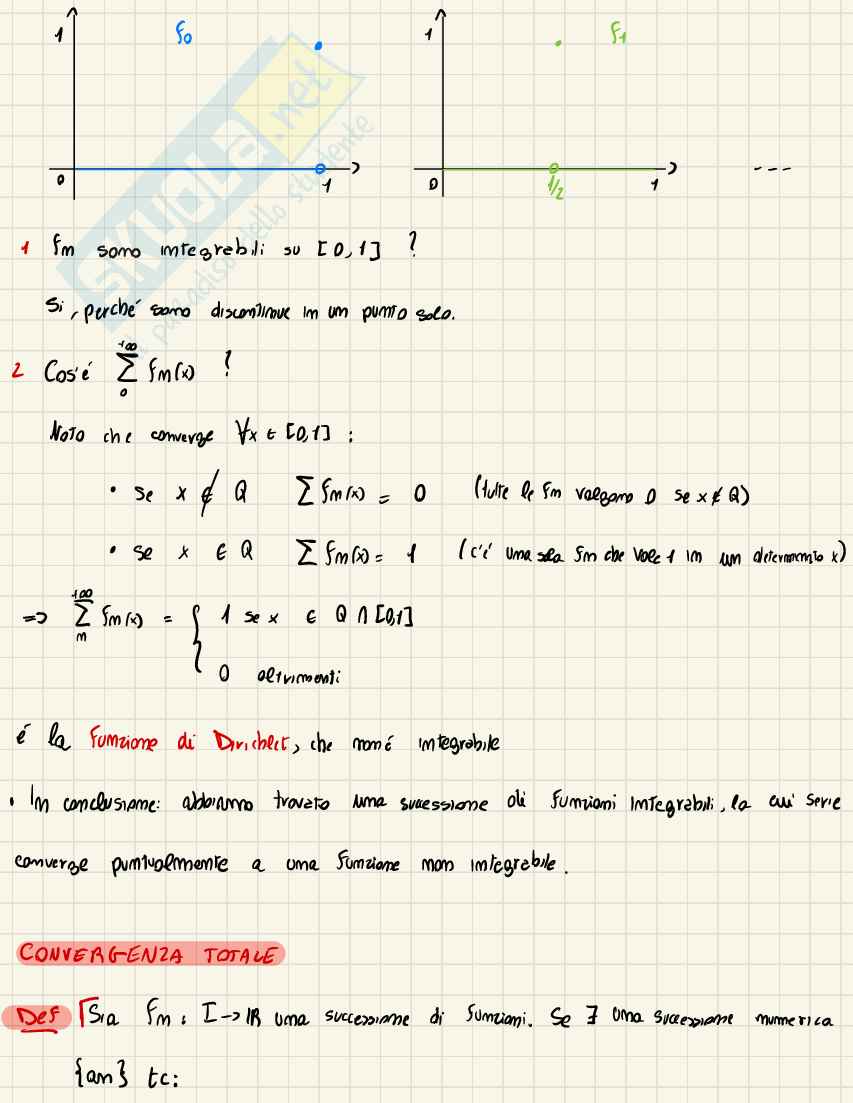 1 f0 1 f1
0 1 0 1/2 1 ---
1 fn sono integrabili su [0,1] ?
Si, perché sono discontinue in un punto solo.
2 Cos'è +∞ ∑ 0 fn(x) ?
Noto che converge ∀x ∈ [0,1] :
• se x ∉ Q ∑ fn(x) = 0 (tutte le fn valgono 0 se x ∉ Q)
• se x ∈ Q ∑ fn(x) = 1 (c'è una sola fn che vale 1 in un determinato x)
=> +∞ ∑ n fn(x) = { 1 se x ∈ Q ∩ [0,1]
0 altrimenti
é la funzione di Dirichlet, che non é integrabile
• In conclusione: abbiamo trovato una successione di funzioni integrabili, la cui serie
converge puntualmente a una funzione non integrabile.
CONVERGENZA TOTALE
Def ⌈Sia fn : I -> IR una successione di funzioni. Se ∃ una successione numerica
{an} tc:
SKUOLA.net
il paradiso dello studente